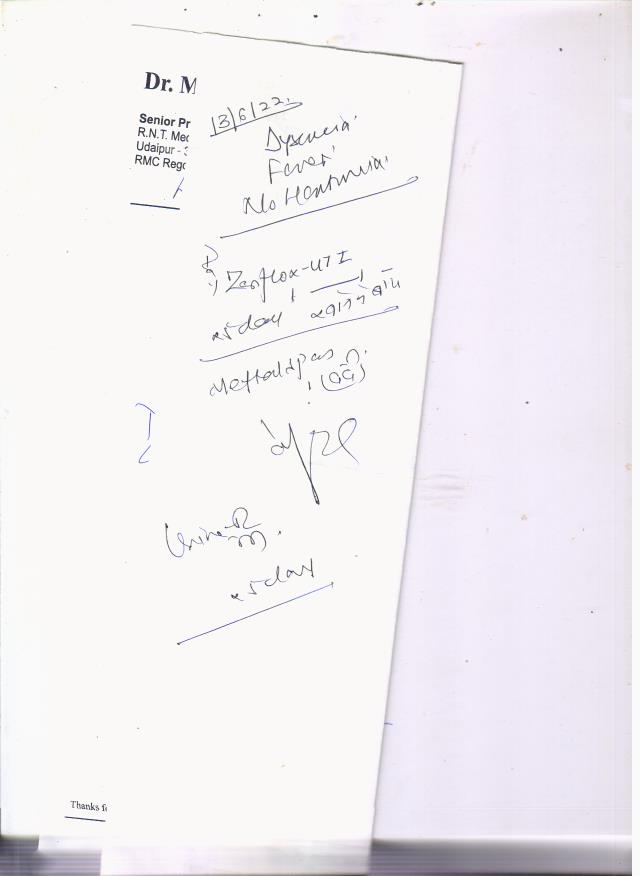 Dr. M
Senior Pr
R.N.T. Med
Udaipur - 3
RMC Rego
13/6/22.
Dysuria.
Fever.
No Hematuria.
Zenflox-UTI
x 5 day
Meftalspas
Urine R
x 5 day
Thanks fo